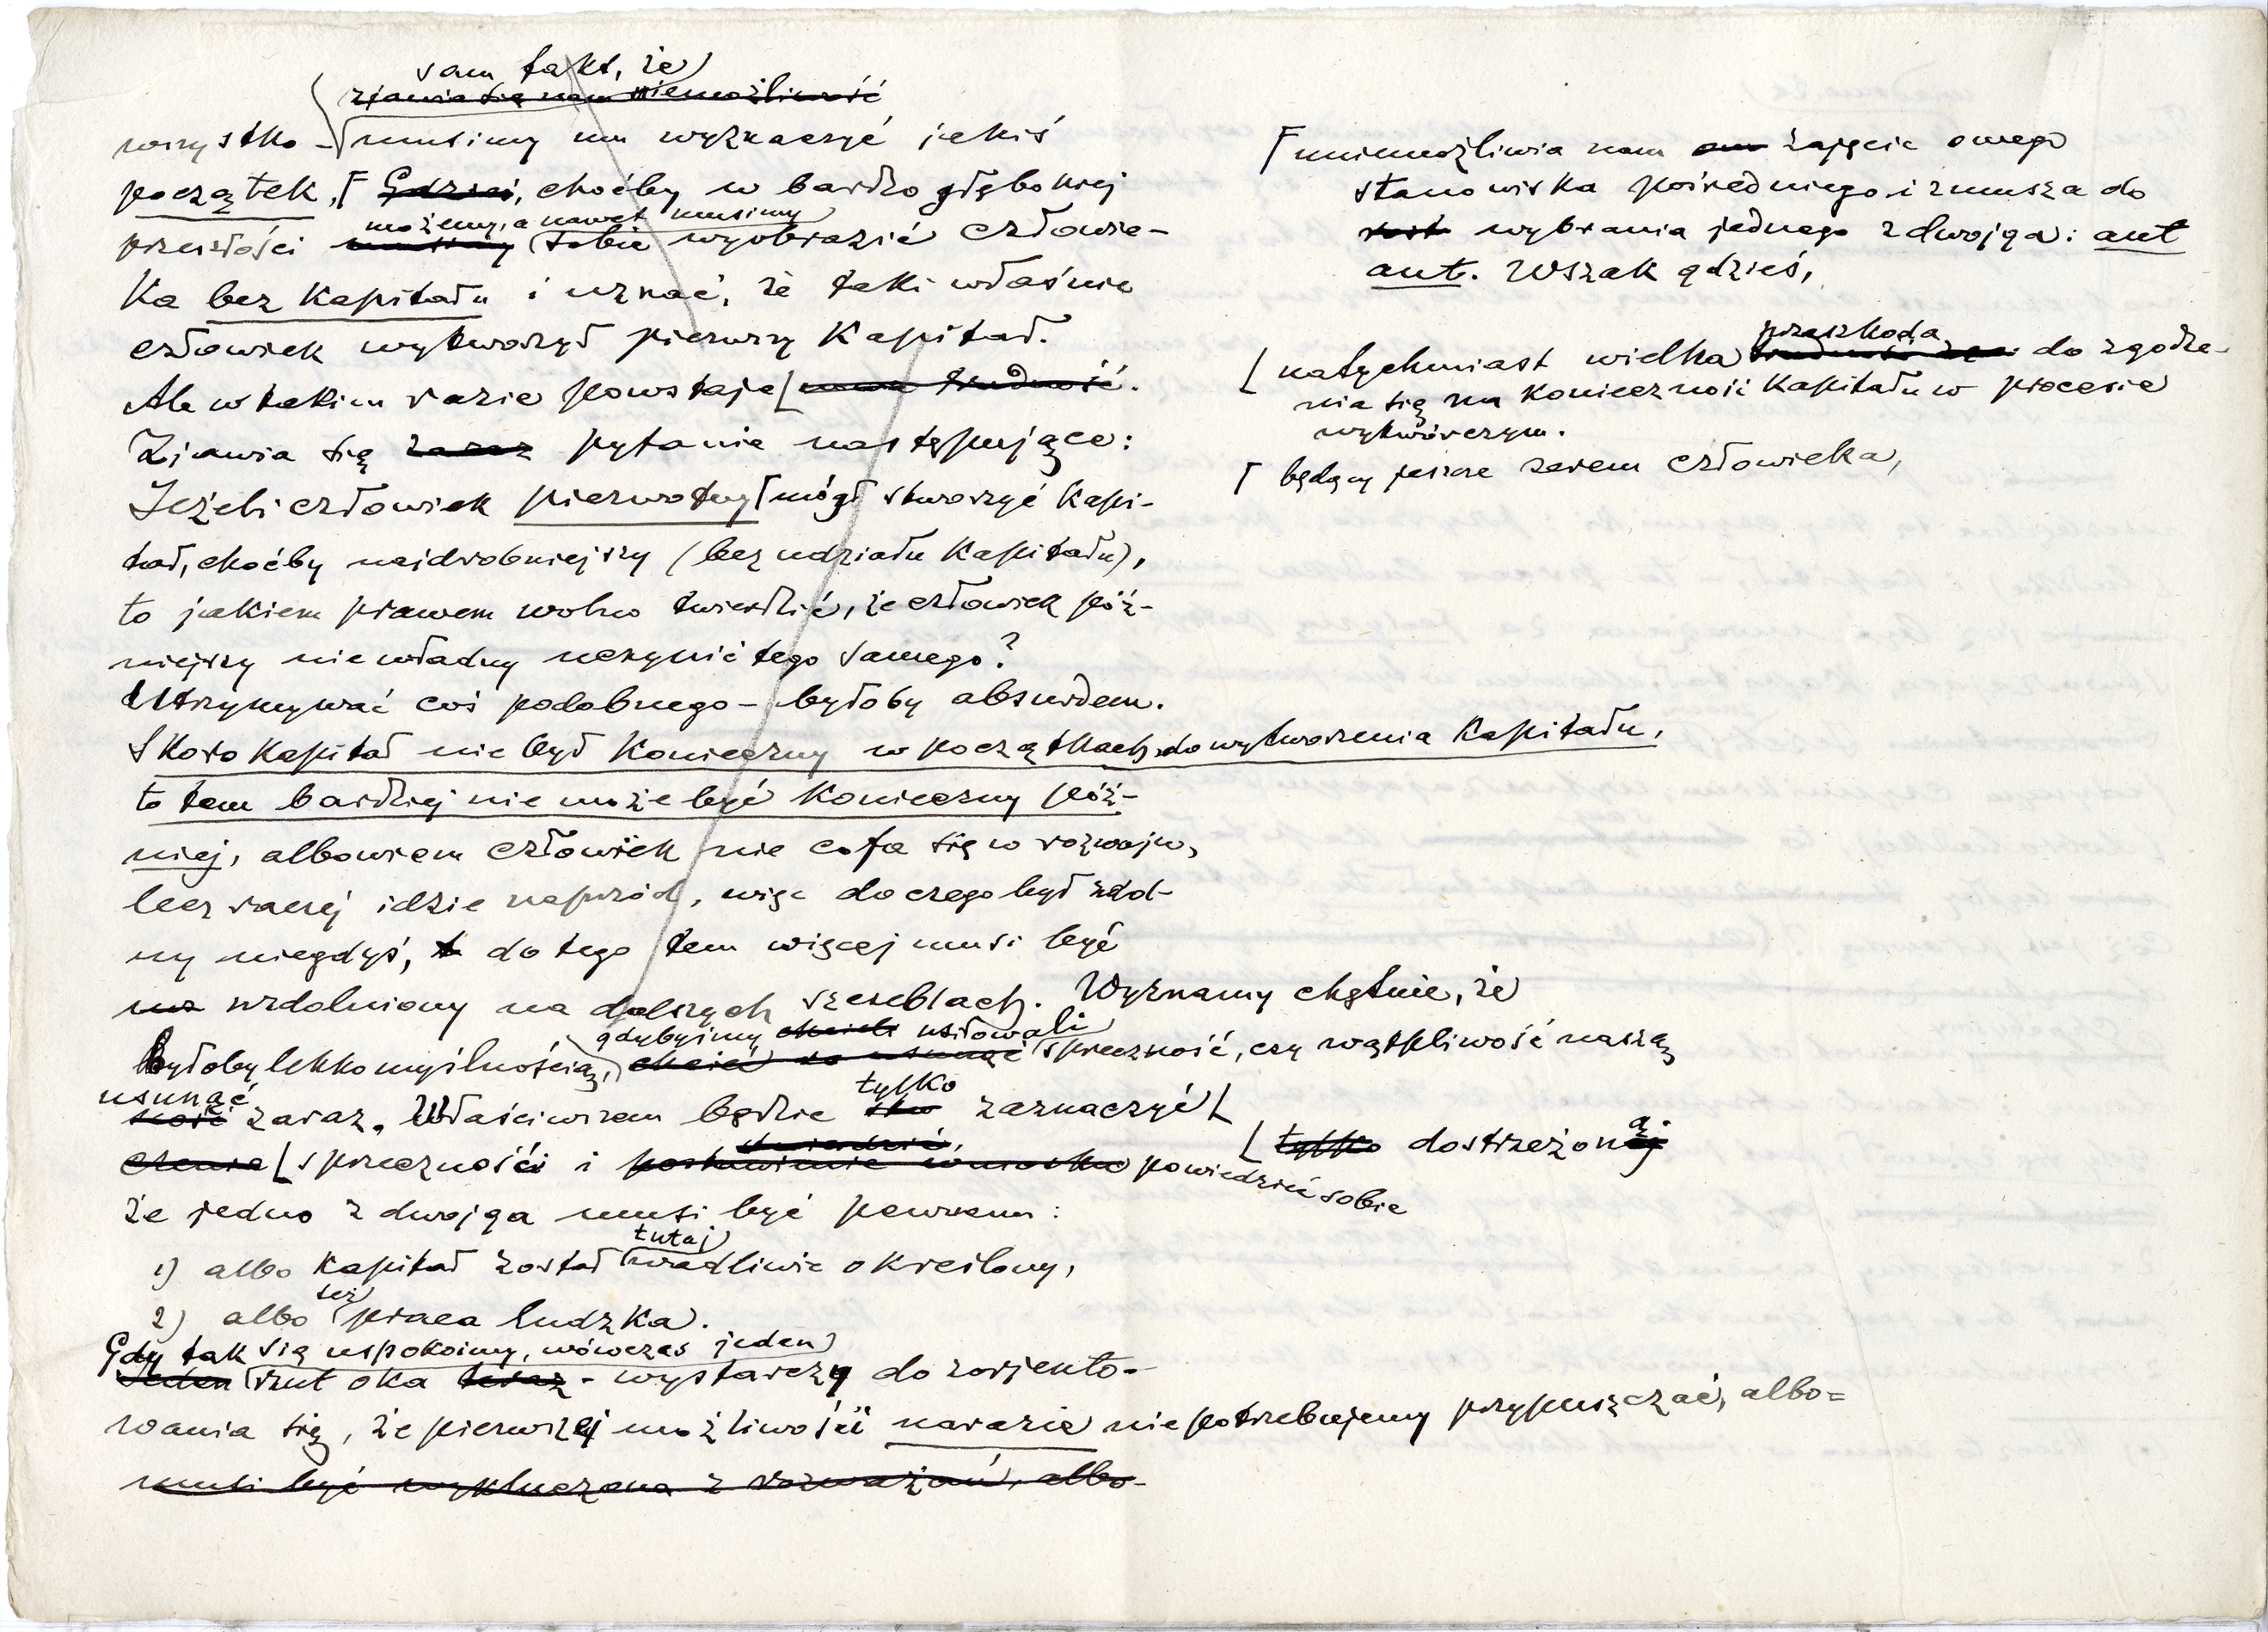 sam fakt, że
zjawia się nam niemożliwość
wszystko – musimy mu wyznaczyć jakiś
początek, Gdzieś, choćby w bardzo głębokiej
możemy, a nawet musimy
przeszłości musimy sobie wyobrazić człowie-
ka bez kapitału i uznać, że taki właśnie
człowiek wytworzył pierwszy kapitał.
Ale w takim razie powstaje nowa trudność.
Zjawia się zaraz pytanie następujące:
Jeżeli człowiek pierwotny mógł stworzyć kapi-
tał, choćby najdrobniejszy (bez udziału kapitału),
to jakiem prawem wolno twierdzić, że człowiek póź-
niejszy nie władny uczynić tego samego?
Utrzymywać coś podobnego – byłoby absurdem.
Skoro kapitał nie był konieczny w początkach do wytworzenia kapitału,
to tem bardziej nie może być konieczny póź-
niej, albowiem człowiek nie cofa się w rozwoju,
lecz raczej idzie naprzód, więc do czego był zdol-
ny niegdyś, t do tego tem więcej musi być
uz uzdolniony na dalszych szczeblach. Wyznamy chętnie, że
gdybyśmy chcieli usiłowali
byłoby lekkomyślnością, chcieć to usunąć sprzeczność, czy wątpliwość naszą
usunąć
zaraz. Właściwszem będzie zaznaczyć
tylko
twierdzić,
czenie sprzeczności i postawienie wniosku powiedzieć sobie
że jedno z dwojga musi być pewnem:
tutaj
1) albo kapitał został wadliwie określony,
też
2) albo praca ludzka.
Gdy tak się uspokoimy, wówczas jeden
Jeden rzut oka teraz – wystarczy do zorjento-
wania się, że pierwszej możliwości narazie nie potrzebujemy przypuszczać, albo=
musi być wykluczona z rozważań, albo-
uniemożliwia nam zajęcie owego
stanowiska pośredniego i zmusza do
wybrania jednego z dwojga: aut
aut. Wszak gdzieś,
przeszkoda
natychmiast wielka trudność do zgodze-
nia się na konieczność kapitału w procesie
wytwórczym.
będący jeszcze zerem człowieka,
tylko dostrzeżoną